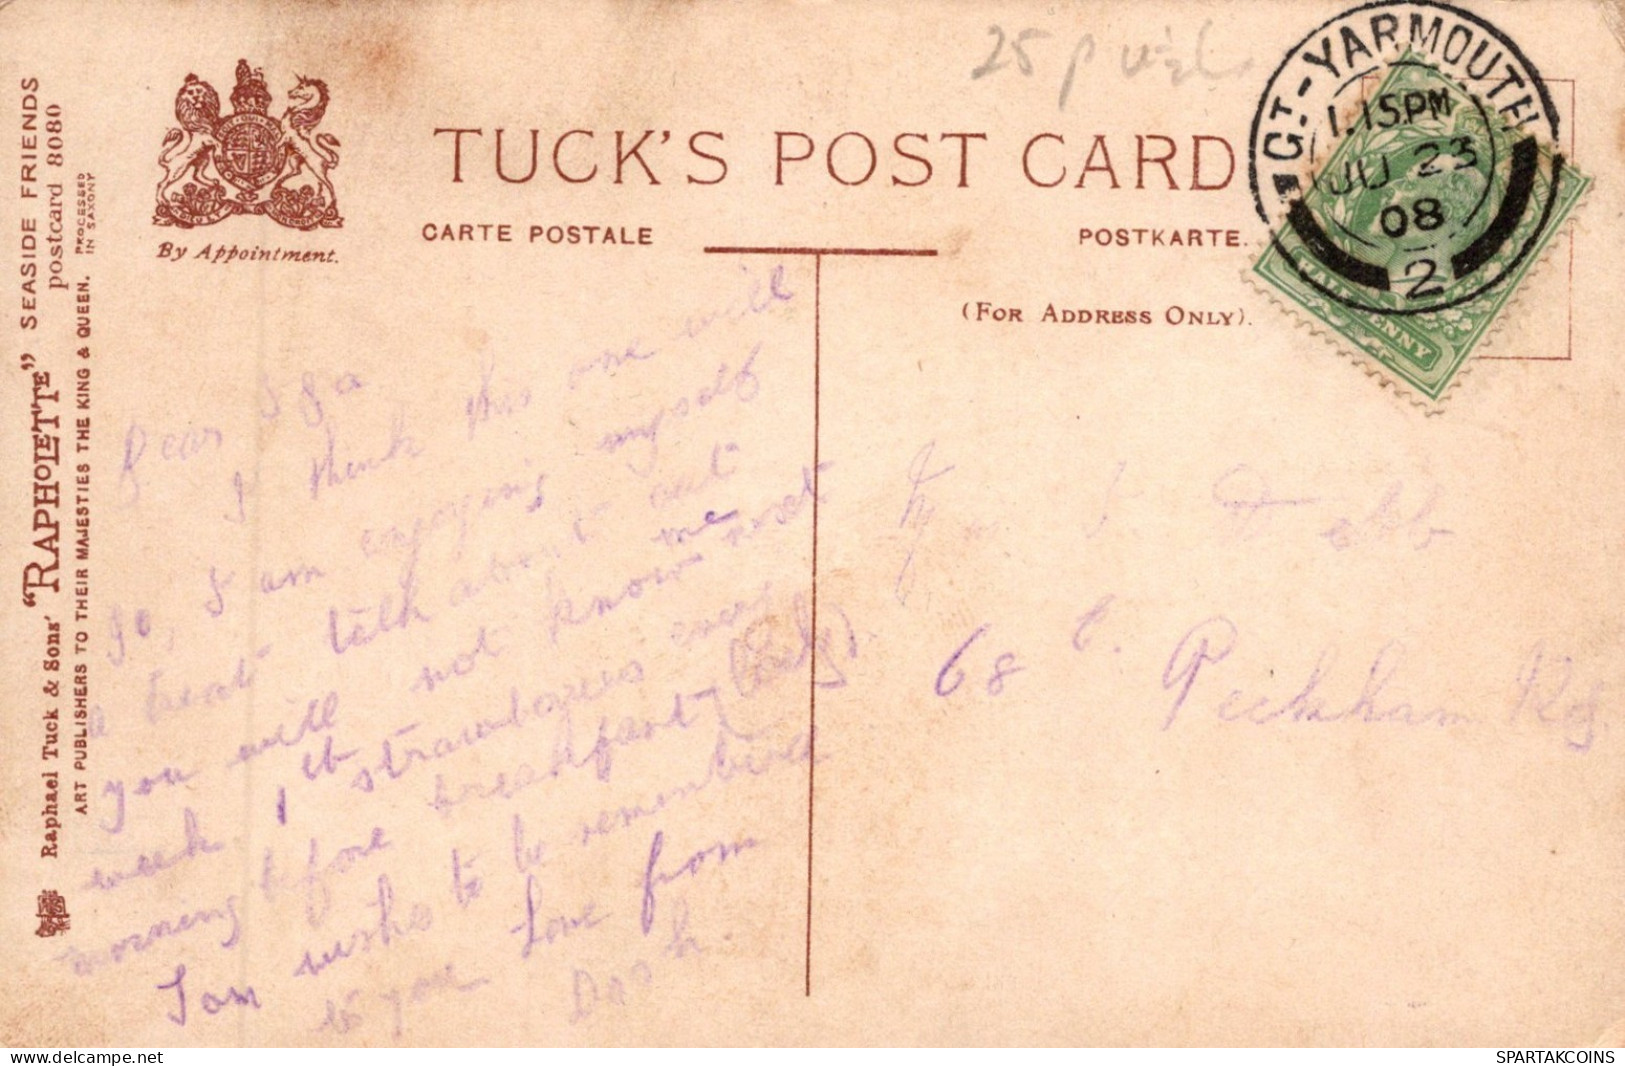 Raphael Tuck & Sons' "RAPHOLETTE" SEASIDE FRIENDS
postcard 8080
ART PUBLISHERS TO THEIR MAJESTIES THE KING & QUEEN.
PROCESSED
IN SAXONY
By Appointment.
25 p
TUCK'S POST CARD
CARTE POSTALE
POSTKARTE.
(FOR ADDRESS ONLY).
GT-YARMOUTH
1.15PM
JU 23
08
2
HALFPENNY
Dear
I think this one will
go, I am enjoying myself
a treat talk about eat
you will not know me
week, 1 lb strawberries every
morning before breakfast,
Tom wishes to be remembered
to you Love from
68
Peckham Rd
www.delcampe.net
SPARTAKCOINS